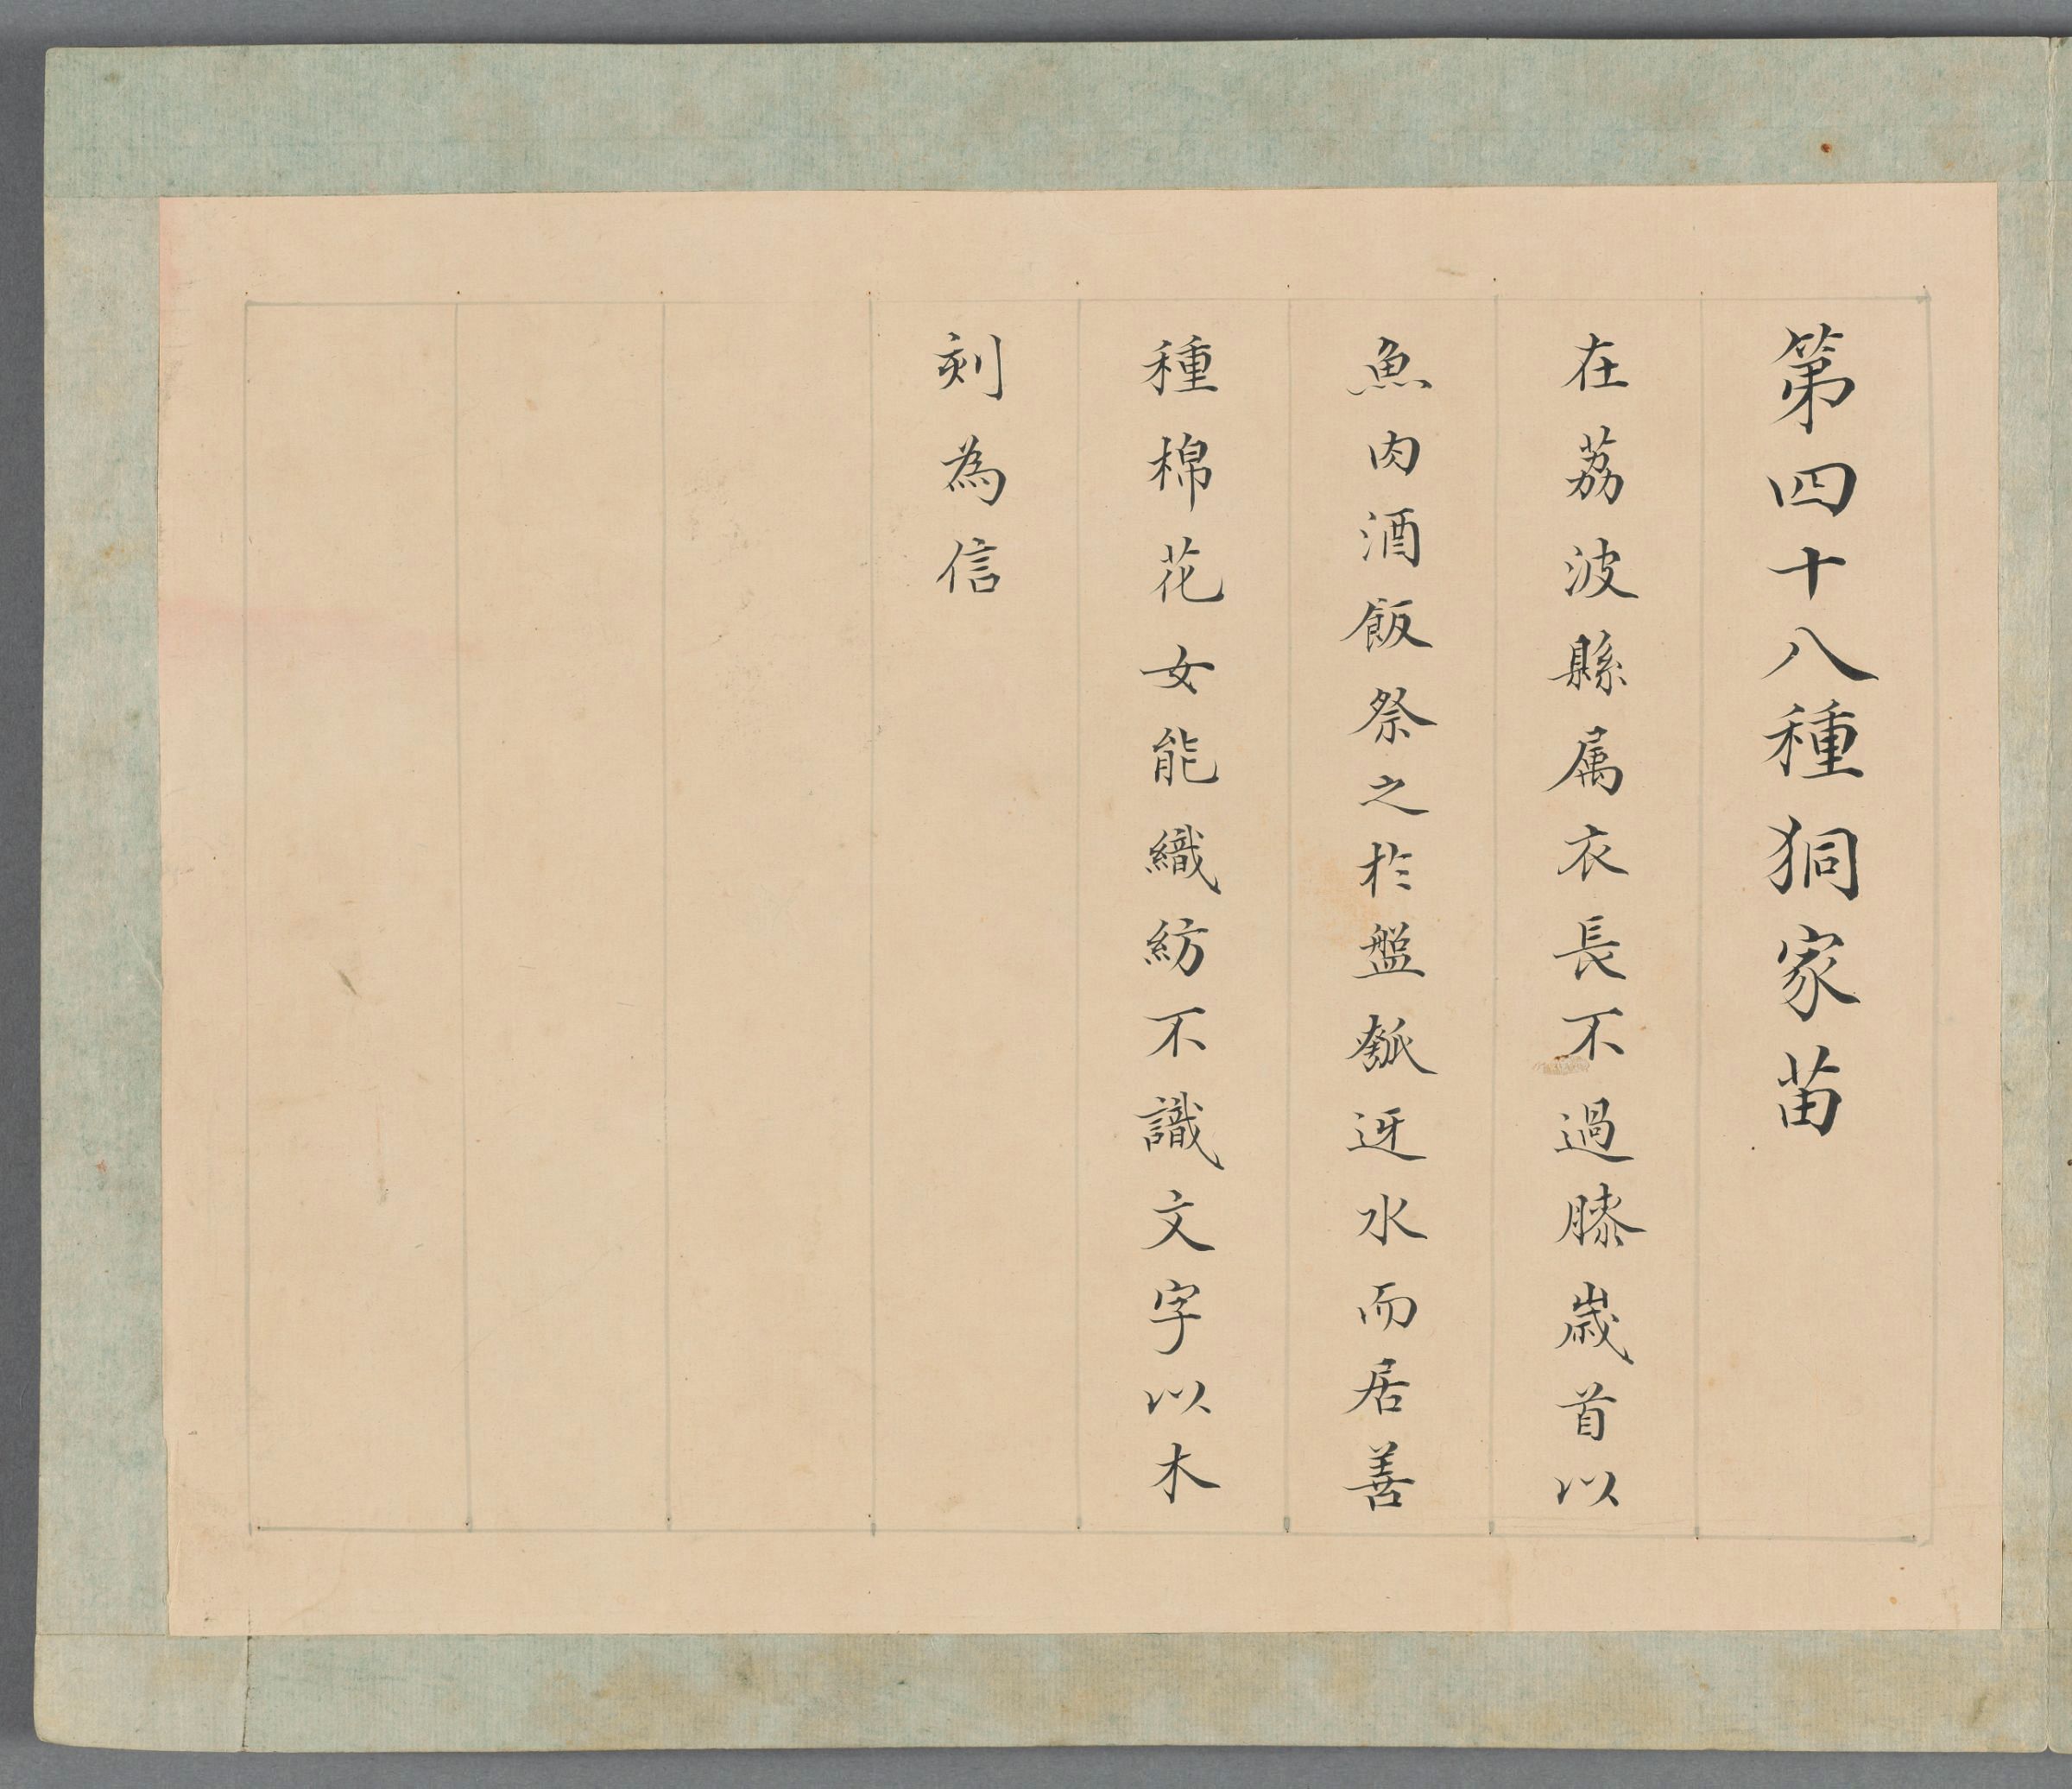 第四十八種狪家苗
在荔波縣属衣長不過膝歲首以
魚肉酒飯祭之於盤瓠迓水而居善
種棉花女能織紡不識文字以木
刻為信